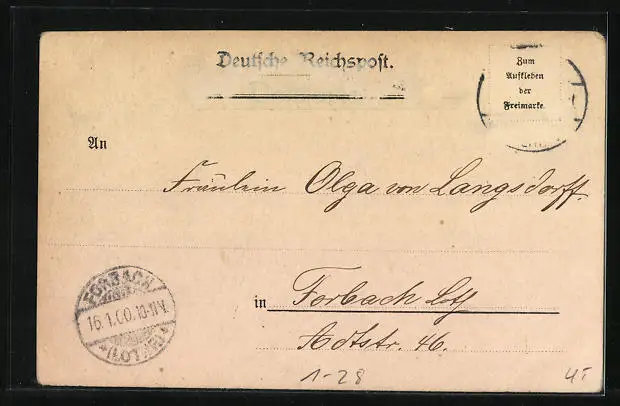 Deutsche Reichspost.
Zum
Aufkleben
der
Freimarke.
An
Fräulein Olga von Langsdorff.
in Forbach Loth
Adtstr. 46.
FORBACH
16.1.00.10-11V.
(LOTH)
1-28
45